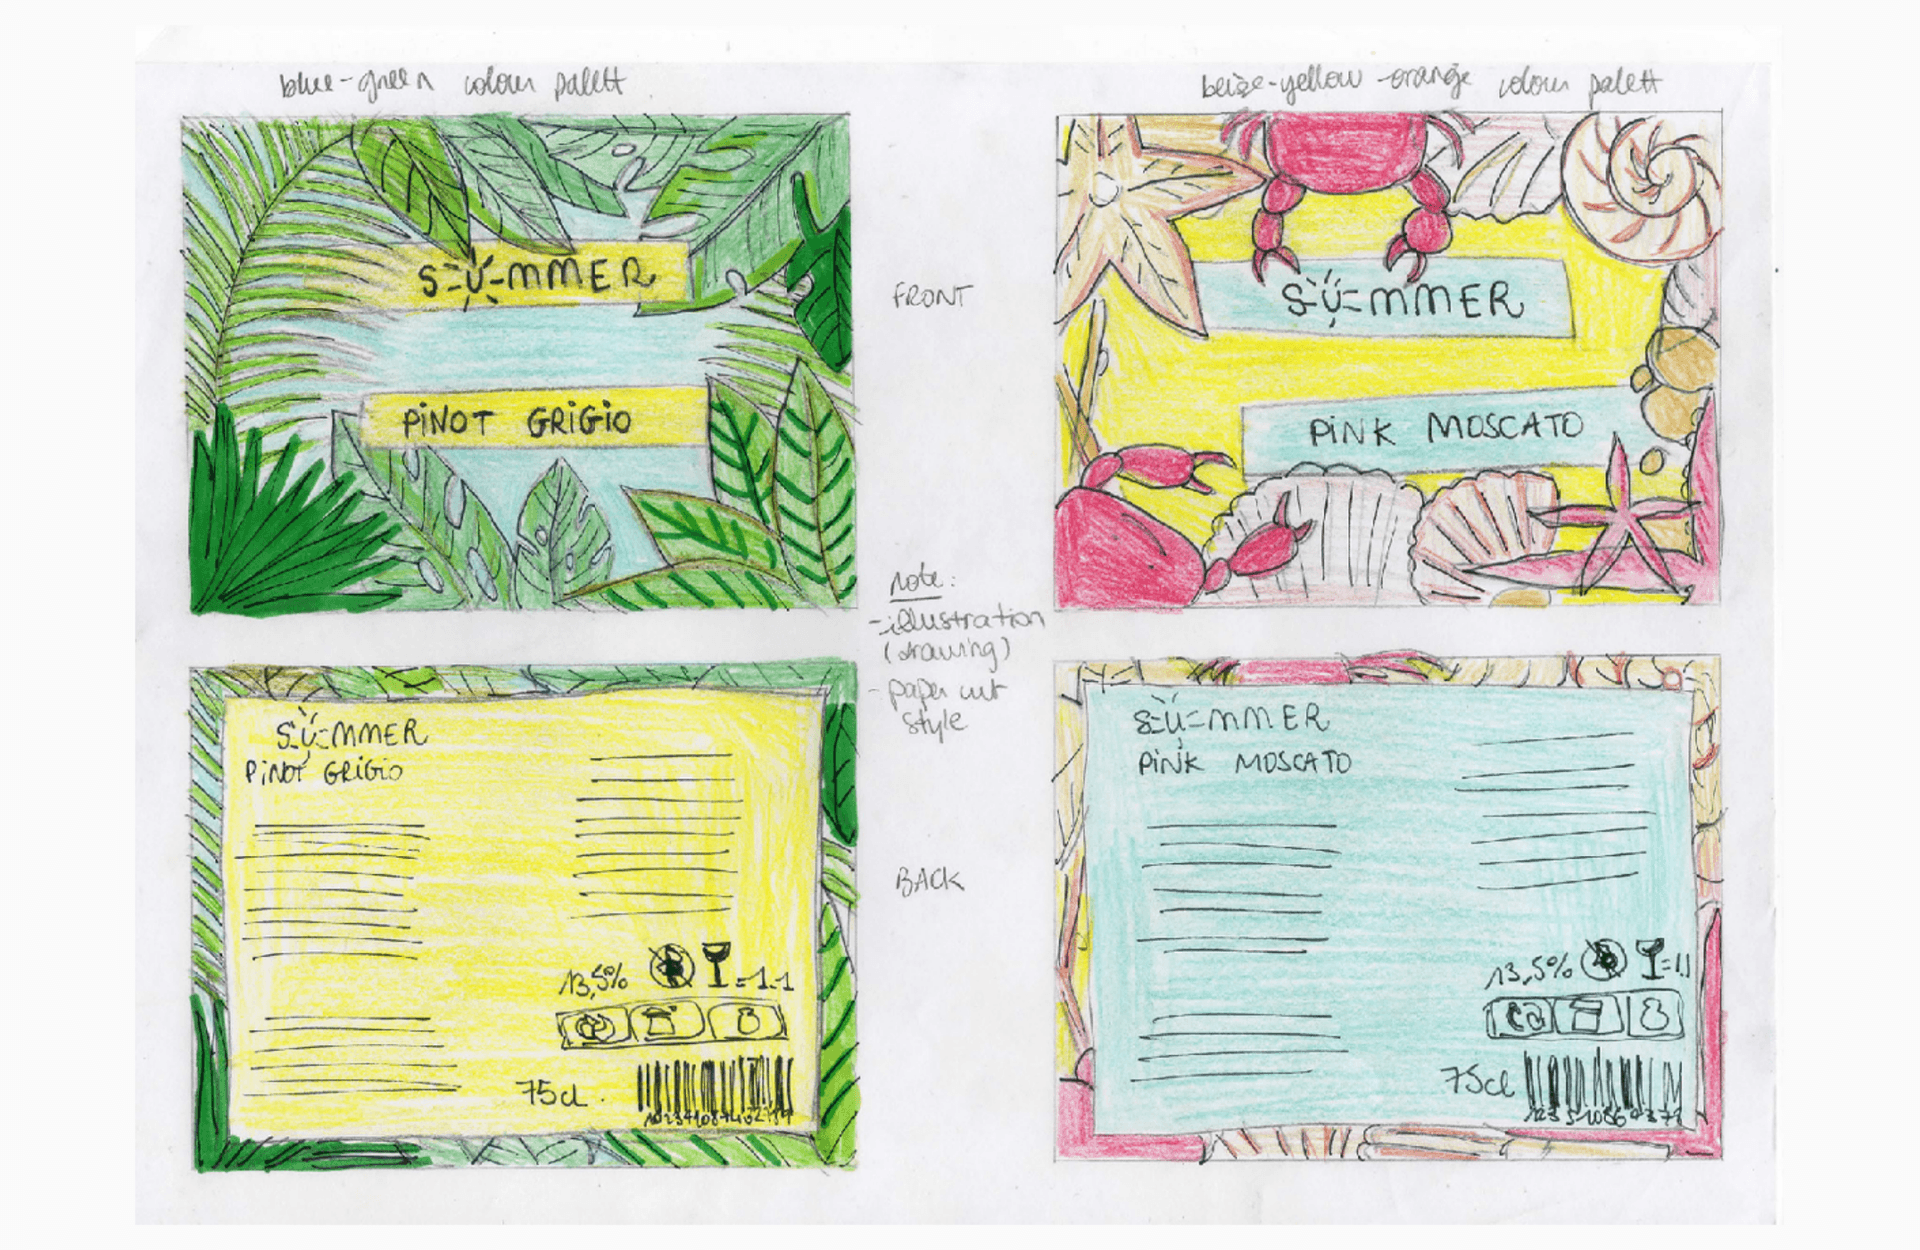 blue-green colour palett
beige-yellow-orange colour palett
SUMMER
PINOT GRIGIO
SUMMER
PINK MOSCATO
FRONT
note:
-illustration
(drawing)
- paper cut
style
SUMMER
PINOT GRIGIO
13,5% =1.1
75cl.
BACK
SUMMER
PINK MOSCATO
13,5% =1.1
75cl